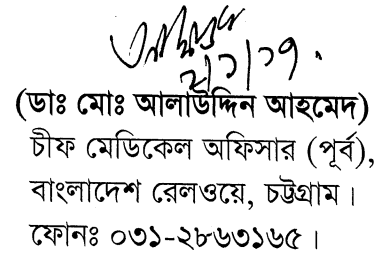 (ডাঃ মোঃ আলাউদ্দিন আহমেদ)
চীফ মেডিকেল অফিসার (পূর্ব),
বাংলাদেশ রেলওয়ে, চট্টগ্রাম।
ফোনঃ ০৩১-২৮৬৩১৬৫।